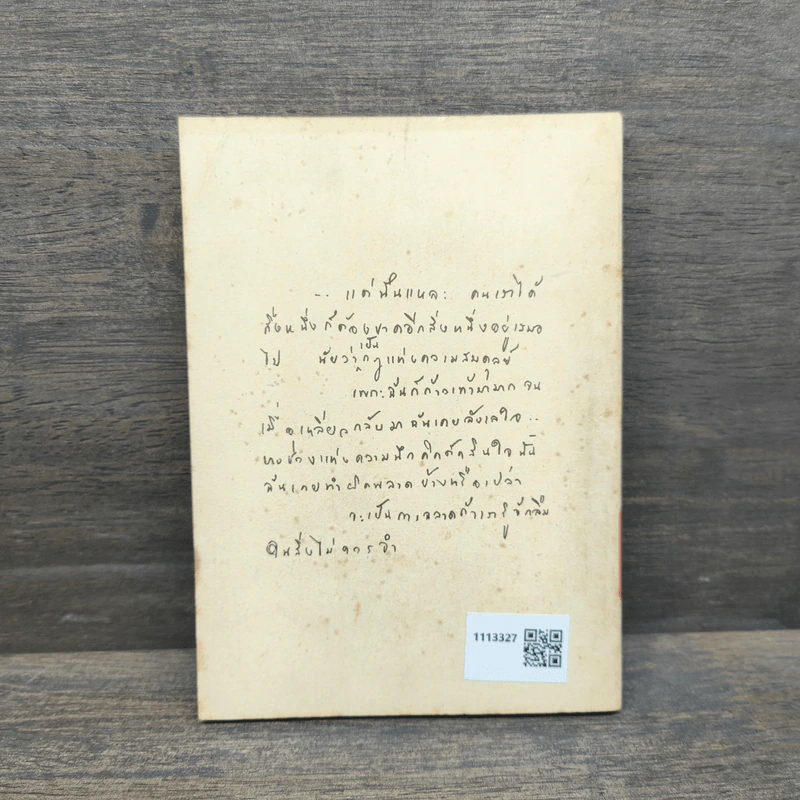 .. แต่นั่นแหละ คนเราได้
สิ่งหนึ่งก็ต้องขาดอีกสิ่งหนึ่งอยู่เสมอ
ไป นัยว่าเป็นกฎแห่งความสมดุลย์
เพราะฉันก็ก้าวเท้ามามาก จน
เมื่อเหลียวกลับมาฉันเคยลังเลใจ ..
บางช่วงแห่งความนึกคิดตัดสินใจนั้น
ฉันเคยทำผิดพลาดบ้างหรือเปล่า
จะเป็นการฉลาดถ้าเรารู้จักลืม
ในสิ่งไม่ควรจำ
1113327